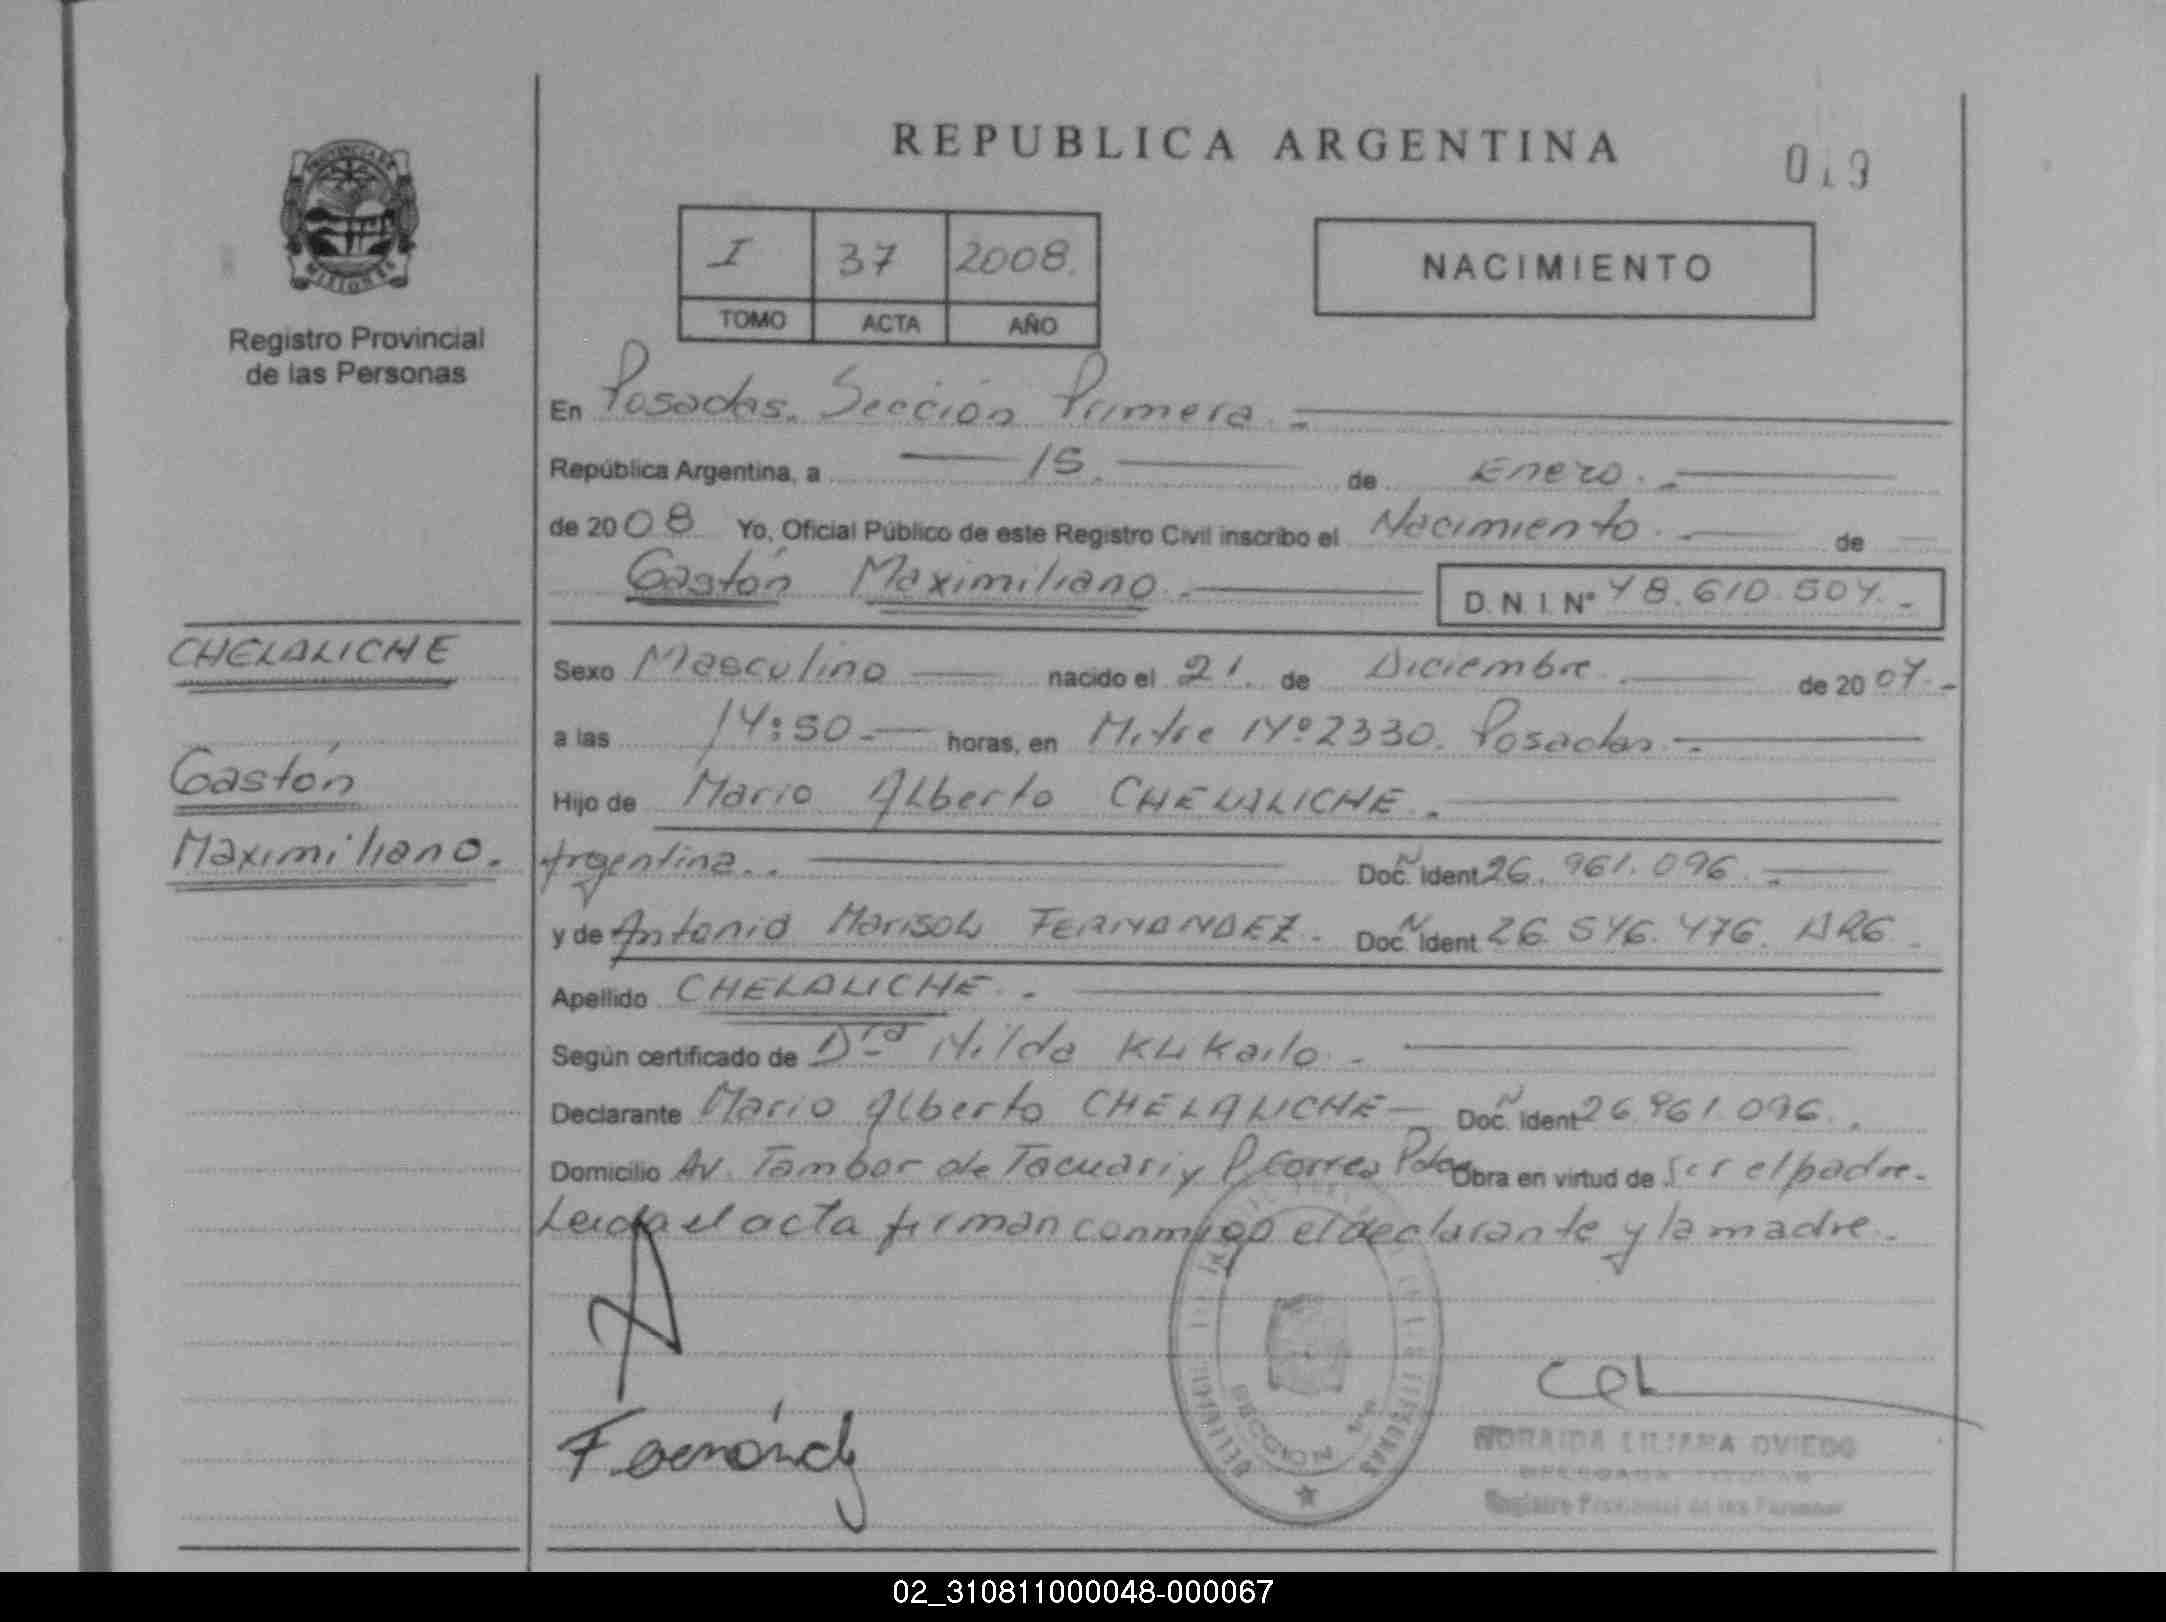 REPUBLICA ARGENTINA
019
PROVINCIA DE
MISIONES
Registro Provincial
de las Personas
I 37 2008.
TOMO ACTA AÑO
NACIMIENTO
En Posadas. Sección Primera.-
República Argentina, a 15. de Enero.-
de 2008 Yo, Oficial Público de este Registro Civil inscribo el Nacimiento.- de
Gastón Maximiliano.- D.N.I. Nº 48.610.504.-
CHELALICHE
Gastón
Maximiliano.
Sexo Masculino nacido el 21. de Diciembre.- de 2007.-
a las 14:50.- horas, en Mitre Nº 2330. Posadas.-
Hijo de Mario Alberto CHELALICHE.-
Argentina.. Doc. Ident 26.961.096.-
y de Antonia Marisol FERNANDEZ. Doc. Ident 26.546.476. ARG.
Apellido CHELALICHE.
Según certificado de Dra Nilda KLKailo.-
Declarante Mario Alberto CHELALICHE- Doc. Ident 26.961.096.
Domicilio Av. Tambor de Tacuari y P. Correa Pdas Obra en virtud de Ser el padre.
Leida el acta firman conmigo el declarante y la madre.
SECCION 1ra
NORAIDA LILIANA OVIEDO
DELEGADA TITULAR
Registro Provincial de las Personas
02_310811000048-000067